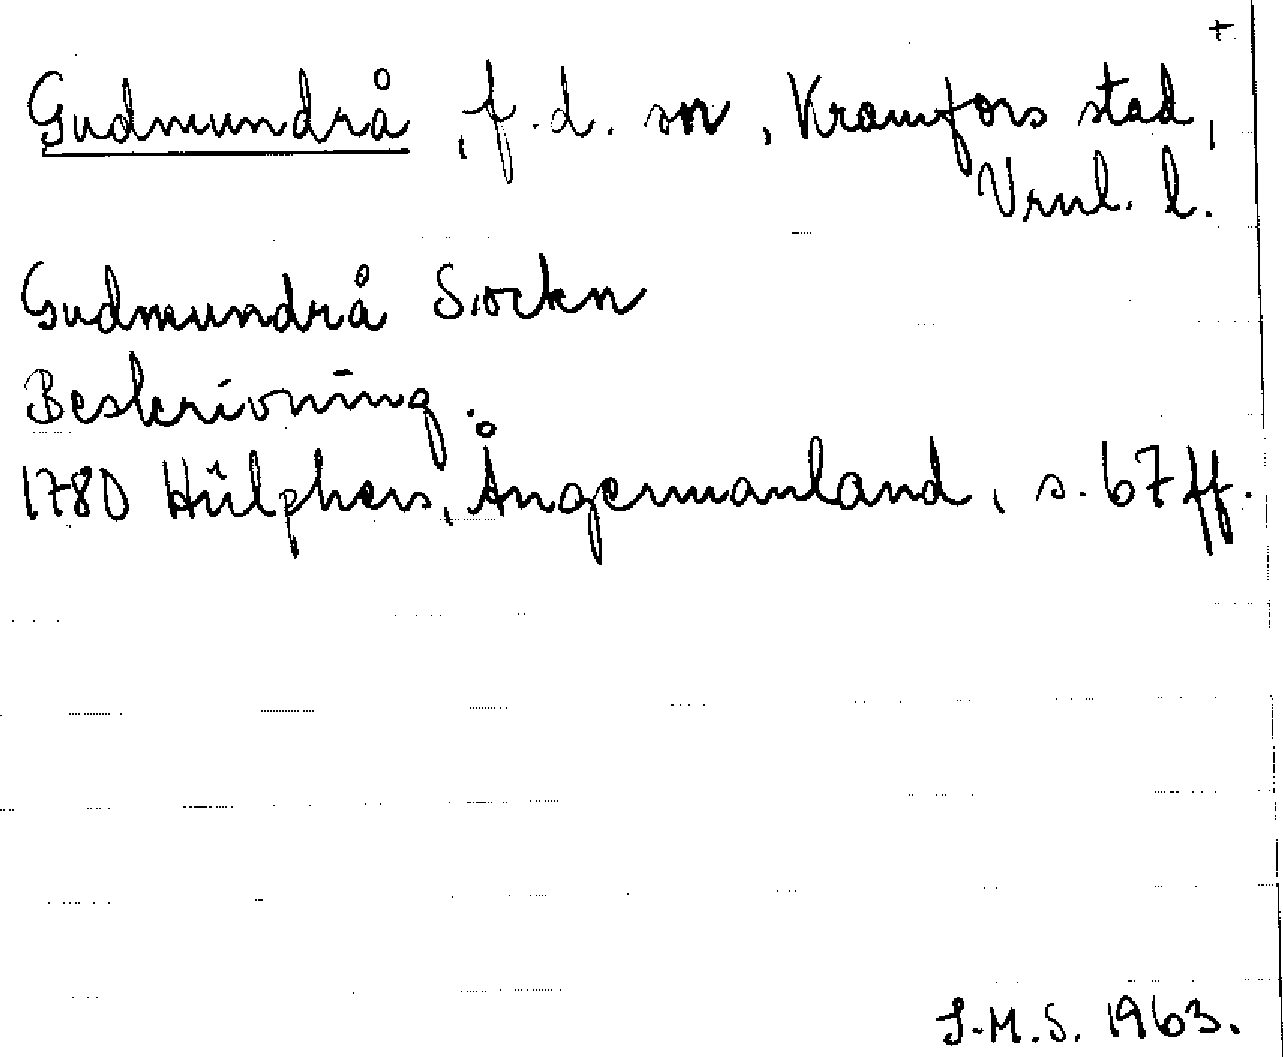 +
Gudmundrå, f.d. sn, Kramfors stad,
Vrnl. l.
Gudmundrå Sockn
Beskrivning.
1780 Hülphers, Ångermanland, s. 67 ff.
S.M.S. 1963.